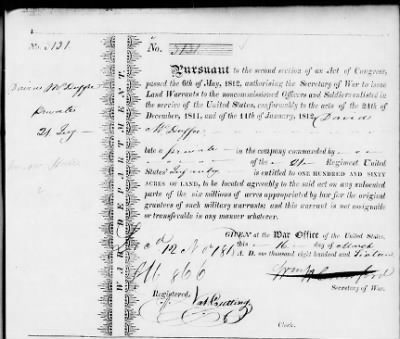 No. 5131
No. 5131
Pursuant to the second section of an Act of Congress,
passed the 6th of May, 1812, authorising the Secretary of War to issue
Land Warrants to the noncommissioned Officers and Soldiers enlisted in
the service of the United States, conformably to the acts of the 24th of
December, 1811, and of the 11th of January, 1812, David
McDuffee
late a private in the company commanded by
of the 21 Regiment United
States' Infantry is entitled to ONE HUNDRED AND SIXTY
ACRES OF LAND, to be located agreeably to the said act on any unlocated
part of the six millions of acres appropriated by law for the original
grantees of such military warrants; and this warrant is not assignable
or transferable in any manner whatever.
GIVEN at the War Office of the United States,
this 16 day of March
A. D. one thousand eight hundred and sixteen
Secretary of War.
Registered,
Clerk.
WAR DEPARTMENT.
McDuffee
Private
21 Inf